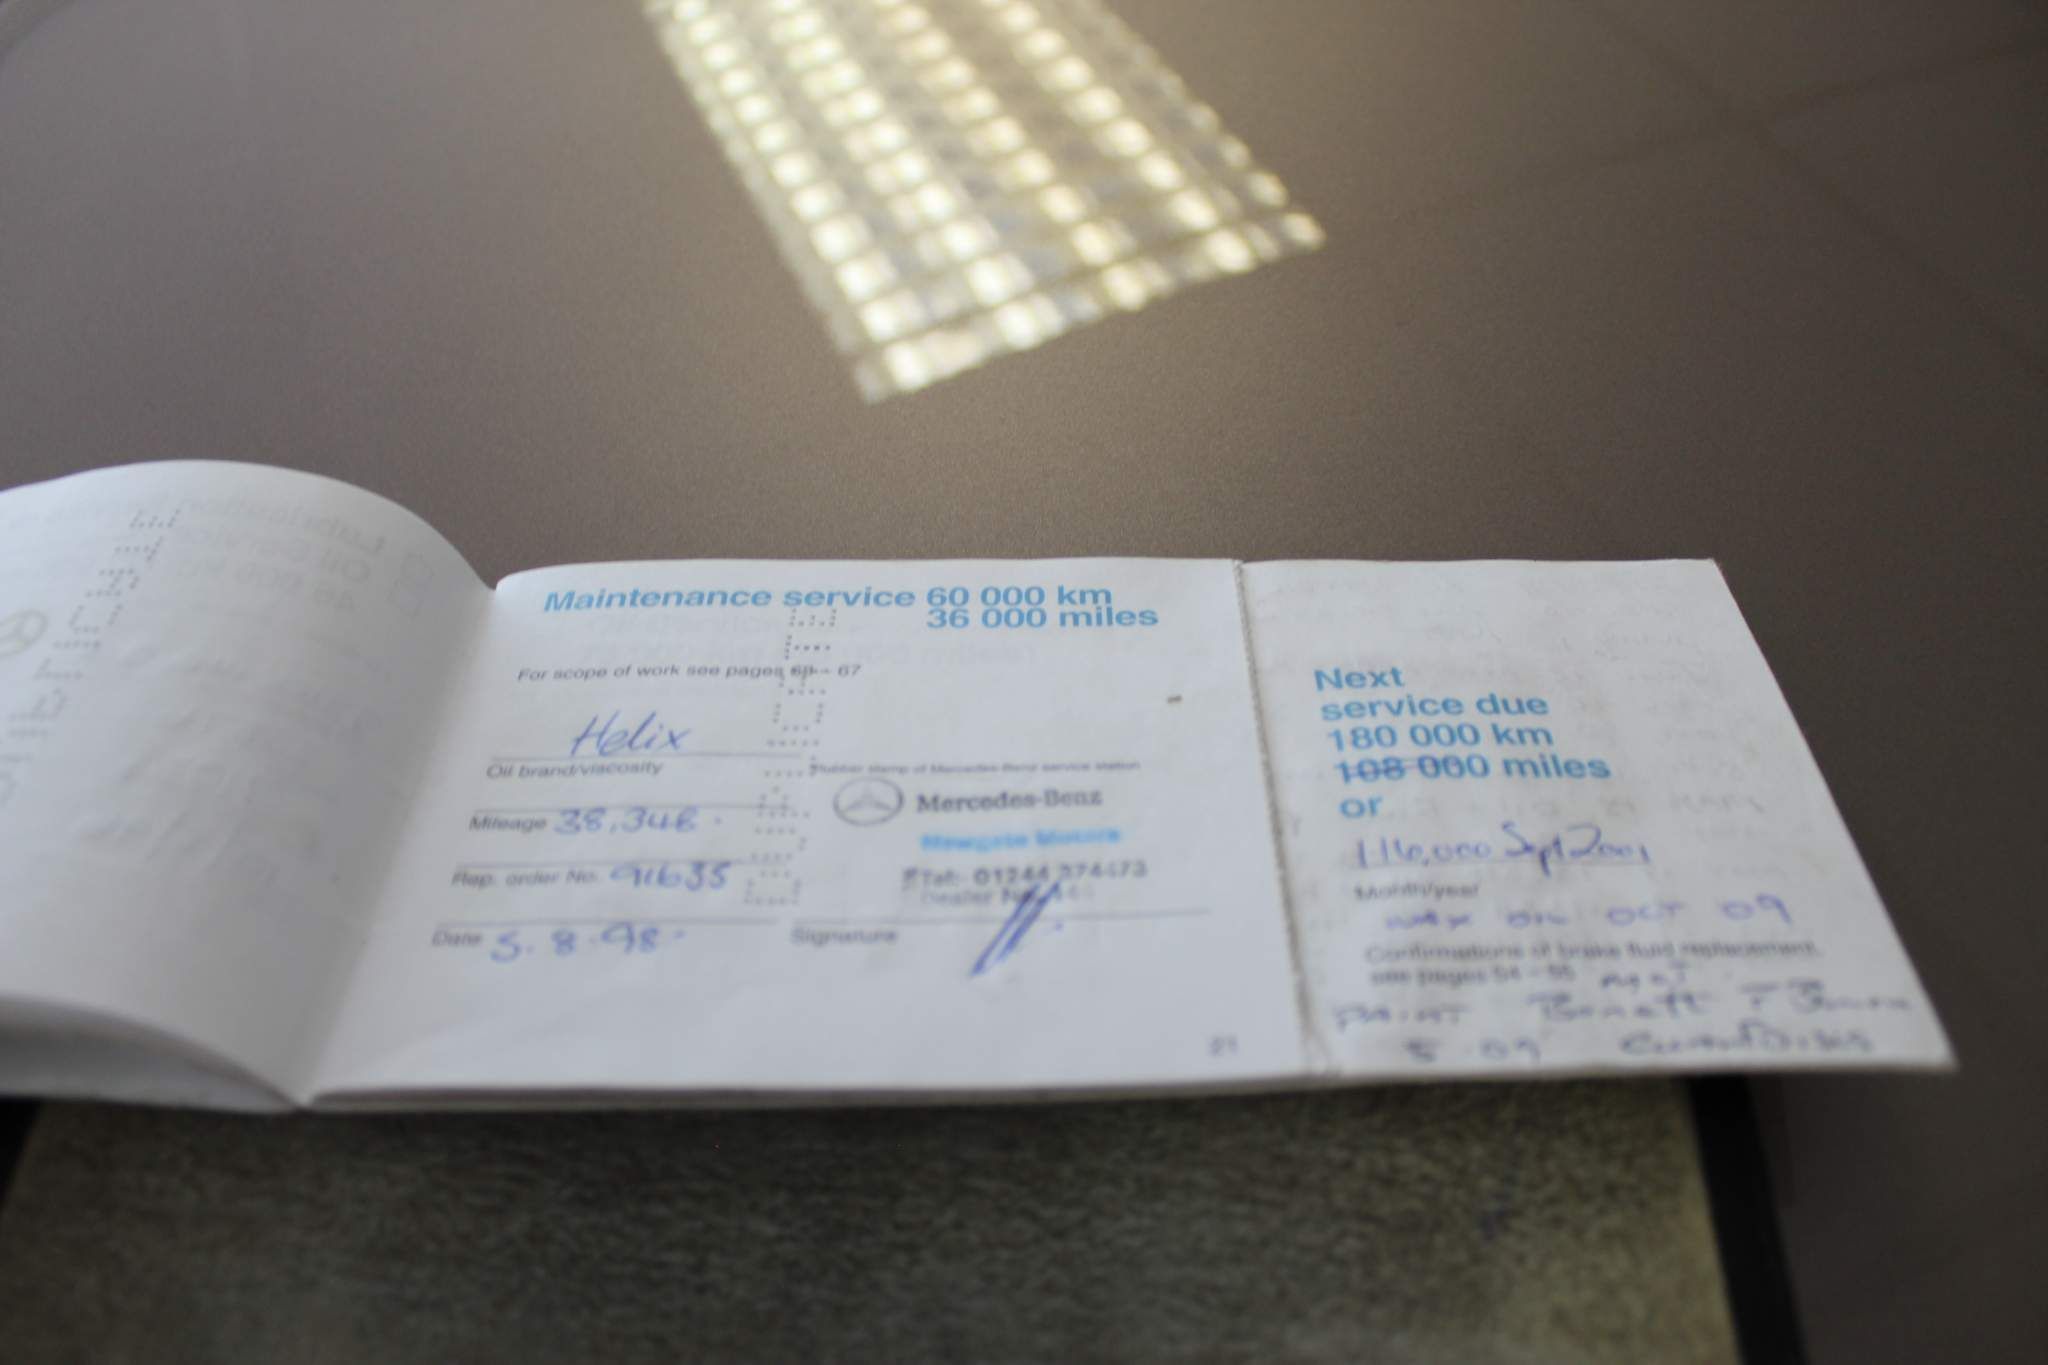 Maintenance service 60 000 km
36 000 miles
For scope of work see pages 67
Helix
Oil brand/viscosity
Rubber stamp of Mercedes-Benz service station
Mercedes-Benz
Newgate Motors
Mileage 38,346
Tel:- 01244 374473
Dealer
Rep. order No. 91635
Date 5.8.98
Signature
21
Next
service due
180 000 km
108 000 miles
or
116,000 Sept 2001
Month/year
WAX OIL OCT 09
Confirmations of brake fluid replacement,
see pages 54 – 55
PAINT
5.09